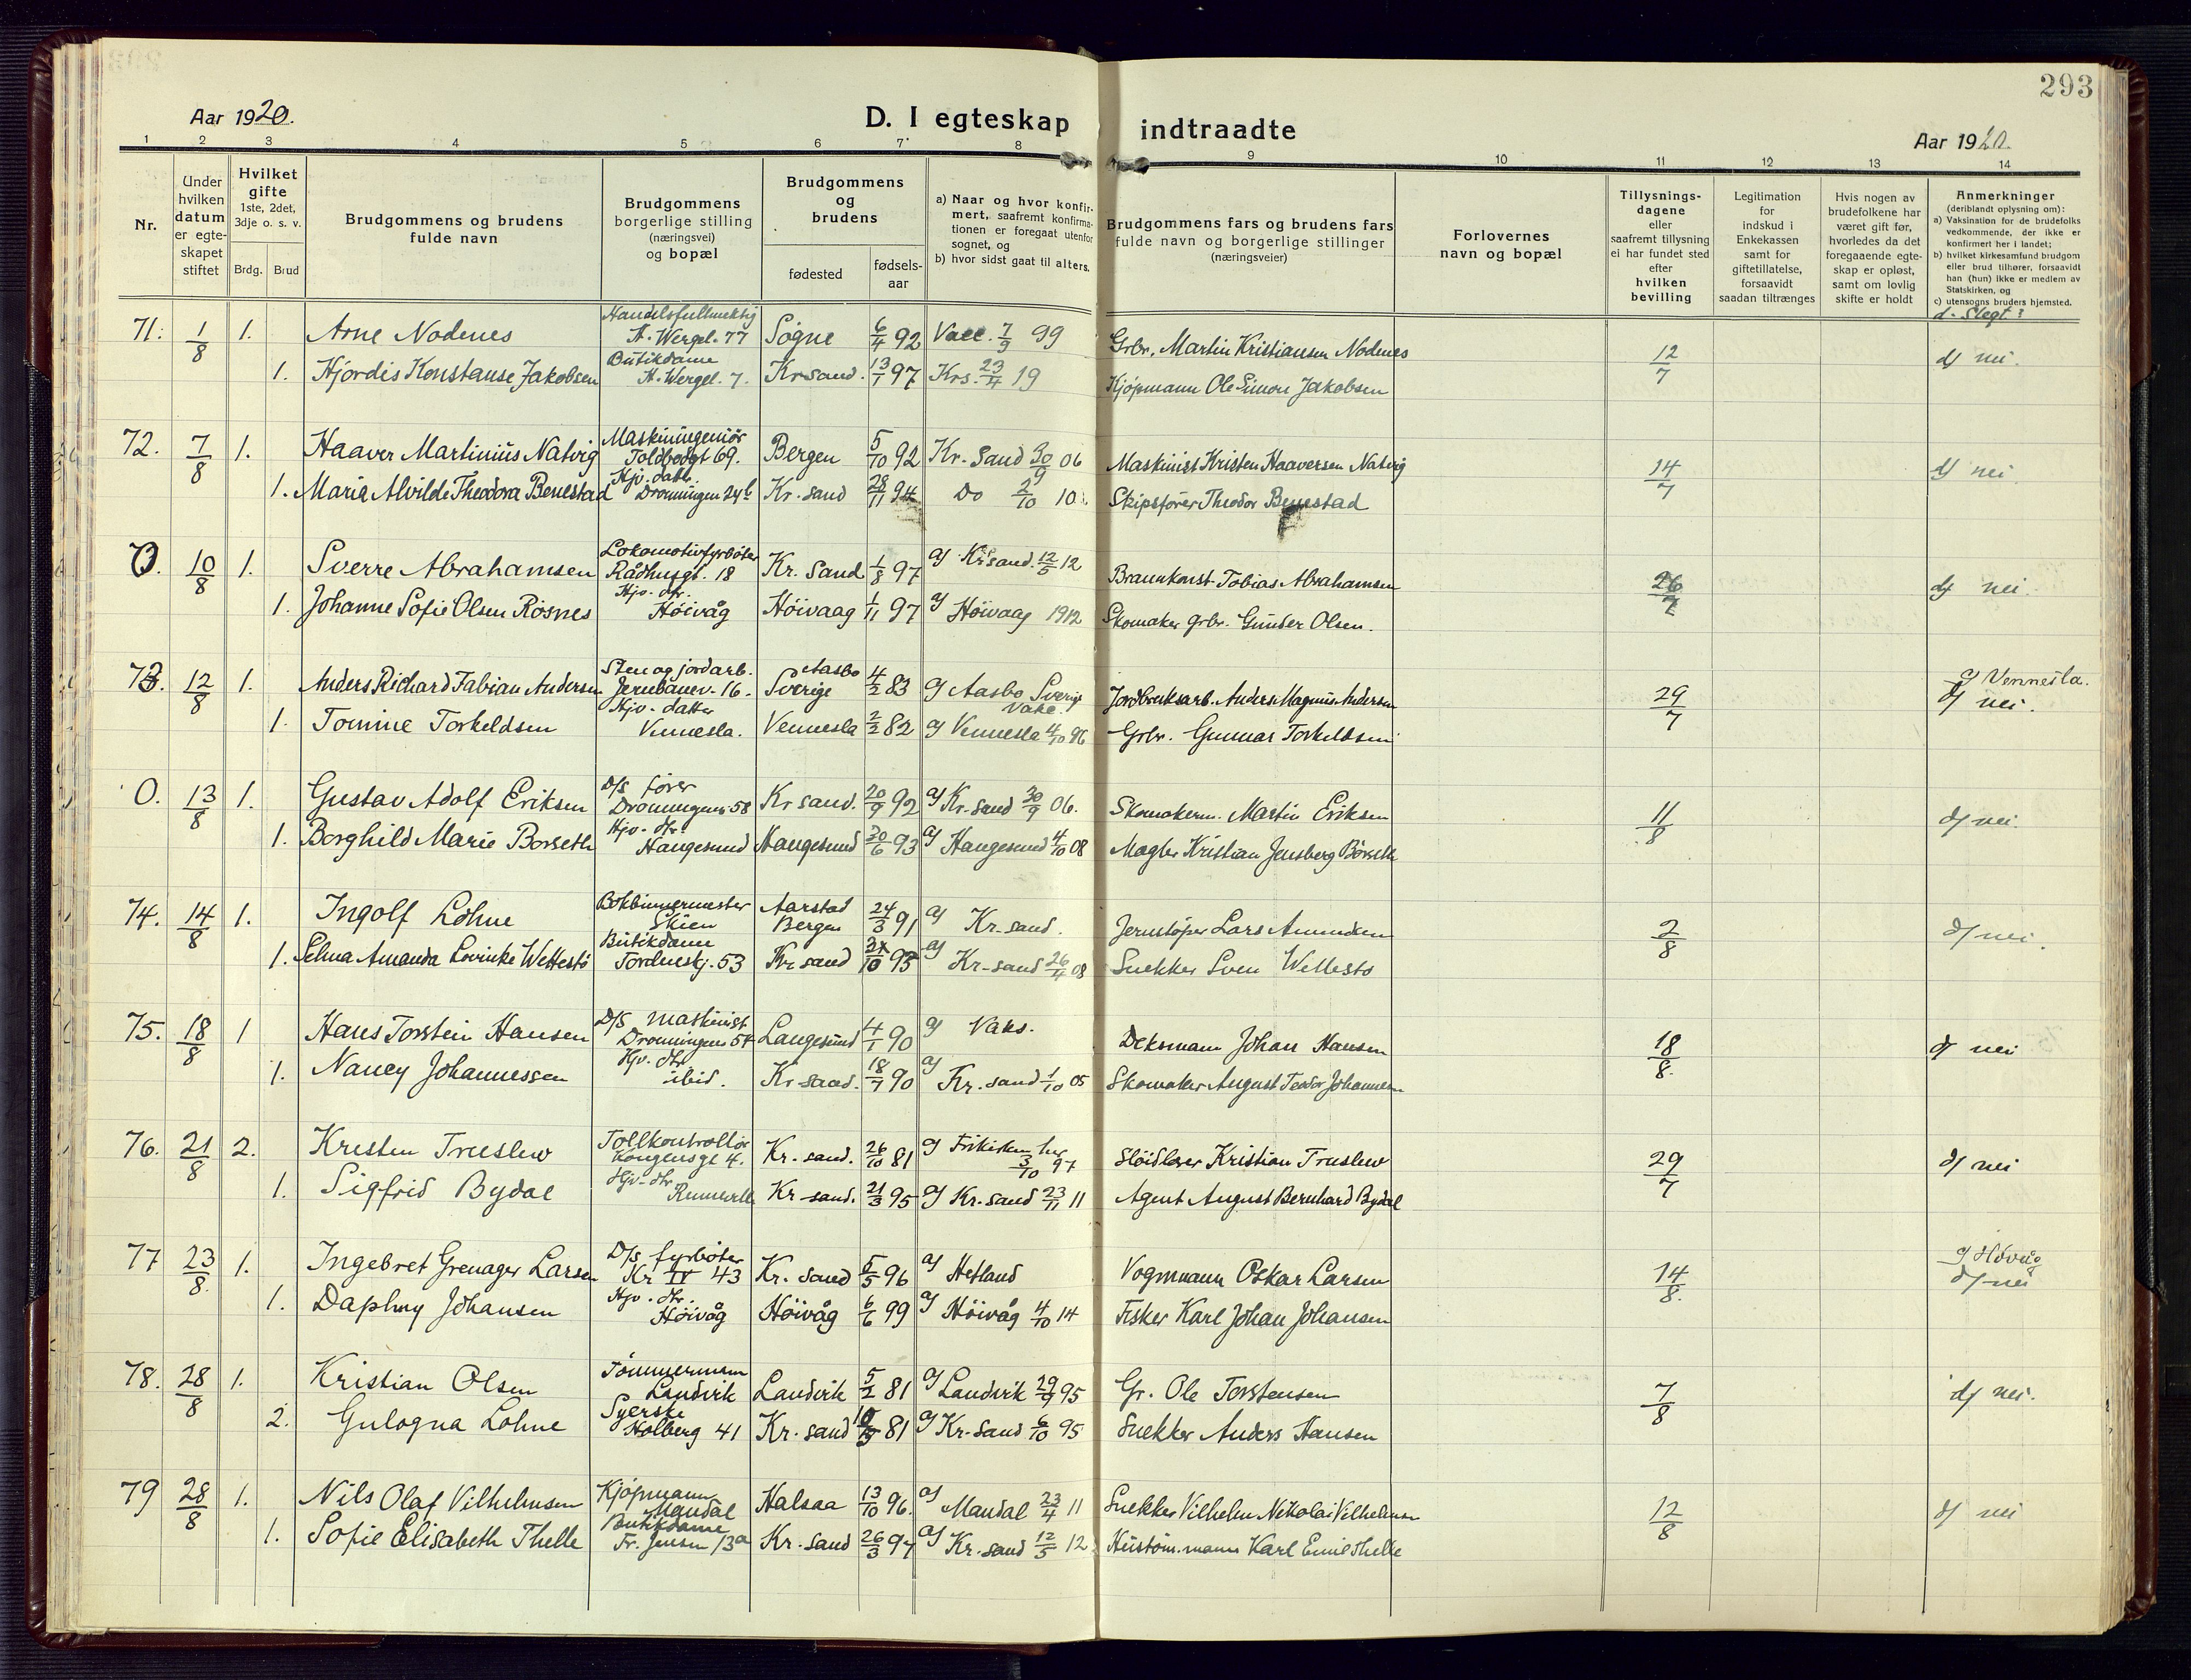 293
Aar 1920.
D. I egteskap indtraadte
Aar 1920.
1 2 3 4 5 6 7 8 9 10 11 12 13 14
Nr.
Under hvilken datum er egteskapet stiftet
Hvilket gifte 1ste, 2det, 3dje o. s. v.
Brdg. Brud
Brudgommens og brudens fulde navn
Brudgommens borgerlige stilling (næringsvei) og bopæl
Brudgommens og brudens
fødested
fødselsaar
a) Naar og hvor konfirmert, saafremt konfirmationen er foregaat utenfor sognet, og
b) hvor sidst gaat til alters.
Brudgommens fars og brudens fars fulde navn og borgerlige stillinger (næringsveier)
Forlovernes navn og bopæl
Tillysningsdagene eller saafremt tillysning ei har fundet sted efter hvilken bevilling
Legitimation for indskud i Enkekassen samt for giftetillatelse, forsaavidt saadan tiltrænges
Hvis nogen av brudefolkene har været gift før, hvorledes da det foregaaende egteskap er opløst, samt om lovlig skifte er holdt
Anmerkninger (deriblandt oplysning om):
a) Vaksination for de brudefolks vedkommende, der ikke er konfirmert her i landet;
b) hvilket kirkesamfund brudgom eller brud tilhører, forsaavidt han (hun) ikke er medlem av Statskirken, og
c) utensogns bruders hjemsted.
d. Slegt?
71. 1/8 1. Arne Nodenes Handelsfullmektig H. Wergel. 77 Søgne 6/4 92 Vacc. 7/9 99 Grbr. Martin Kristiansen Nodenes 12/7 d) nei.
1. Hjørdis Konstanse Jakobsen Butikdame H. Wergel. 7. Kr sand. 13/1 97 Krs. 23/4 19 Kjøpmann Ole Simon Jakobsen
72. 7/8 1. Haaver Martinius Natvig Maskiningeniør Toldbodgt 69. Bergen 5/10 92 Kr. Sand 30/9 06 Maskinist Kristen Haaversen Natvig 14/7 d) nei.
1. Maria Alvilde Theodora Benestad Hjv. datter. Dronningen 24b Kr. sand 28/11 94 Do 2/10 10. Skipsfører Theodor Benestad
0. 10/8 1. Sverre Abrahamsen Lokomotivfyrbøter Rådhusgt. 18 Kr. Sand 1/8 97 a) Kr sand. 12/5 12 Braunkonst. Tobias Abrahamsen 26/7 d) nei.
1. Johanne Sofie Olsen Røsnes Hjv. dtr. Høivåg Høivaag 1/11 97 a) Høivaag 1912 Skomaker grbr. Gunder Olsen.
73. 12/8 1. Anders Richard Fabian Andersen Sten og jordarb. Jernbanev. 16. Aasbo Sverige 4/2 83 a) Aasbo Sverige Vake. Jordbruksarb. Anders Magnus Andersen 29/7 c) Vennesla. d) nei.
1. Tomine Torkeldsen Hjv. datter Vennesla. Vennesla 2/2 82 a) Vennesla 4/10 96 Grbr. Gunnar Torkeldsen
0. 13/8 1. Gustav Adolf Eriksen D/S fører Dronningens 58 Kr sand. 20/9 92 a) Kr. sand 30/9 06. Skomakerm. Martin Eriksen 11/8 d) nei.
1. Borghild Marie Børseth Hjv. dtr. Haugesund Haugesund 30/6 93 a) Haugesund 4/10 08 Mægler Kristian Jensberg Børseth
74. 14/8 1. Ingolf Lohne Bokbinnermester Skien Aarstad Bergen 24/3 91 a) Kr. sand. Jernstøper Lars Amundsen 2/8 d) nei.
1. Selma Amanda Lovinke Wettestø Butikdame Tordenskj. 53 Kr sand 31/10 93 a) Kr. sand 26/4 08 Snekker Sven Wettestø
75. 18/8 1 Hans Torstein Hansen D/S maskinist Dronningens 54 Langesund 4/1 90 a) Vaks. Deksmann Johan Hansen 18/8. d) nei
1. Nancy Johannessen Hjv. dtr ibid. Kr sand. 18/7 90 a) Kr. sand 1/10 05 Skomaker August Teodor Johannesen
76. 21/8 2. Kristen Truslew Tollkontrollør Kongensgt 4. Kr. sand. 26/10 81 a) Frikirken her 3/10 97 Sløidlærer Kristian Truslew 29/7 d) nei
1. Sigfrid Bydal Hjv. dtr Kr sand. 21/3 95 a) Kr. sand 23/11 11 Agent August Bernhard Bydal
77 23/8. 1. Ingebret Grenager Larsen D/S fyrbøter Kr IV 43 Kr. sand 5/5 96 a) Hetland Vognmann Oskar Larsen 14/8. c) Høvåg d) nei
1. Daphny Johansen Hjv. dtr. Høivåg Høivåg 6/6 99 a) Høivåg 4/10 14 Fisker Karl Johan Johansen
78. 28/8 1. Kristian Olsen Tømmermann Landvik Landvik 5/2 81 a) Landvik 29/9 95 Gr. Ole Torstensen 7/8 d) nei.
2. Gulogna Lohne Syerske Holberg 41 Kr. sand 81 a) Kr. Sand 6/10 95 Snekker Anders Hansen
79 28/8 1. Nils Olaf Vilhelmsen Kjøpmann Mandal Halsaa 13/10 96. a) Mandal 23/4 11 Snekker Vilhelm Nikolai Vilhelmsen 12/8 d) nei
1. Sofie Elisabeth Thelle Butikdame Fr. Jensen 13a Kr. sand 26/3 97 a) Kr. sand 12/5 12 Karl Emil Thelle